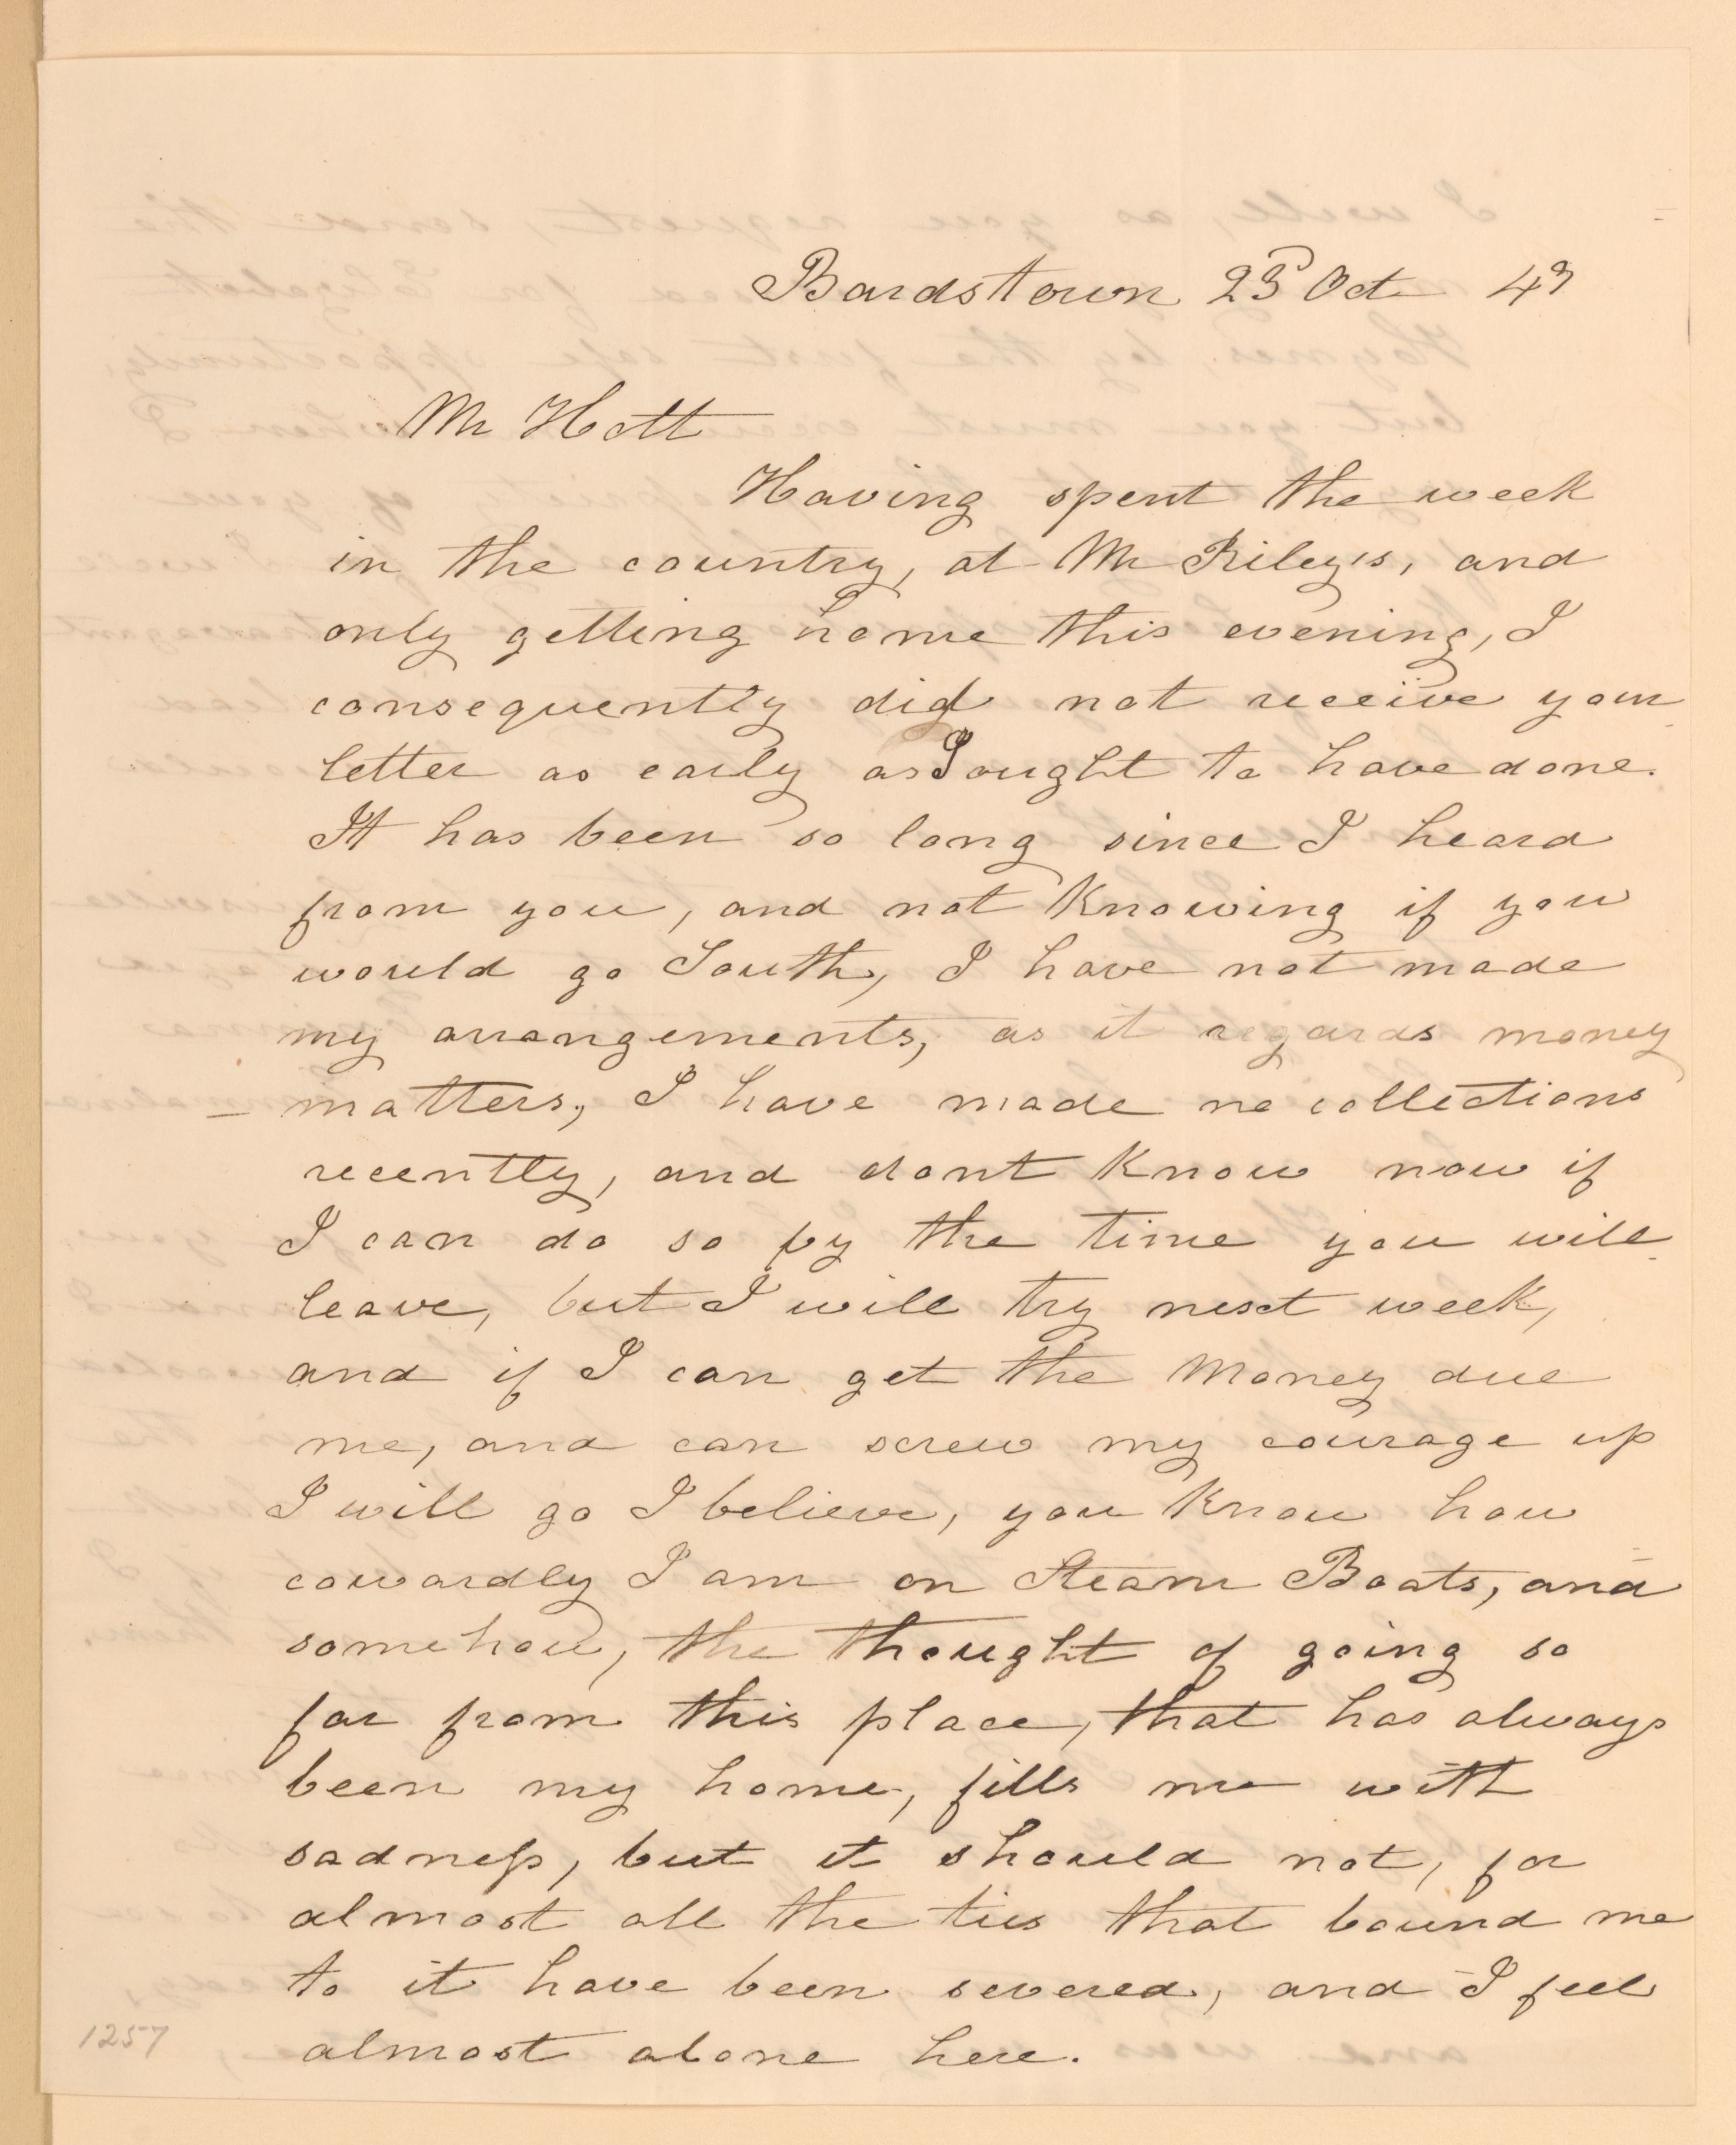 Bardstown 23d Oct 47
Mr Hott
Having spent the week
in the country, at Mr Riley's, and
only getting home this evening, I
consequently did not receive your
letter as early as I ought to have done.
It has been so long since I heard
from you, and not knowing if you
would go South, I have not made
my arrangements, as it regards money
– matters, I have made no collections
recently, and dont know now if
I can do so by the time you will
leave, but I will try next week,
and if I can get the Money due
me, and can screw my courage up
I will go I believe, you know how
cowardly I am on Steam Boats, and
somehow, the thought of going so
far from this place, that has always
been my home, fills me with
sadness, but it should not, for
almost all the ties that bound me
to it have been severed, and I feel
almost alone here.
1257